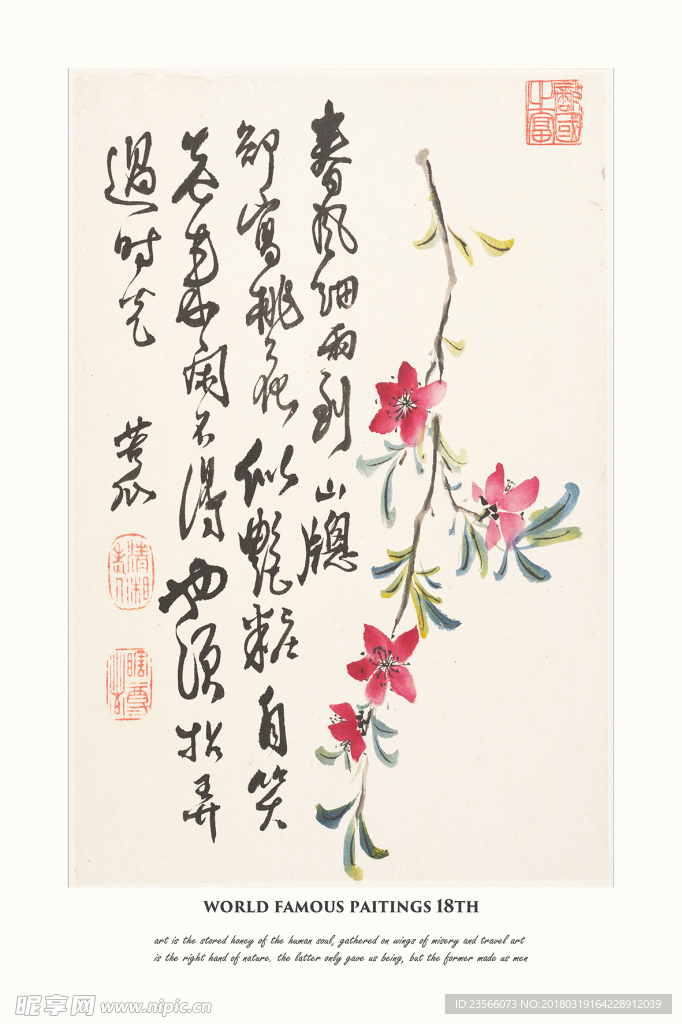 春風細雨到山牕
却寫桃花似艷粧自笑
老來閑不得也須拈弄
過時光
苦瓜
清湘老人
WORLD FAMOUS PAITINGS 18TH
art is the stored honey of the human soul, gathered on wings of misery and travel art
is the right hand of nature. the latter only gave us being, but the former made us men
昵享网 www.nipic.cn
ID:23566073 NO:20180319164228912039